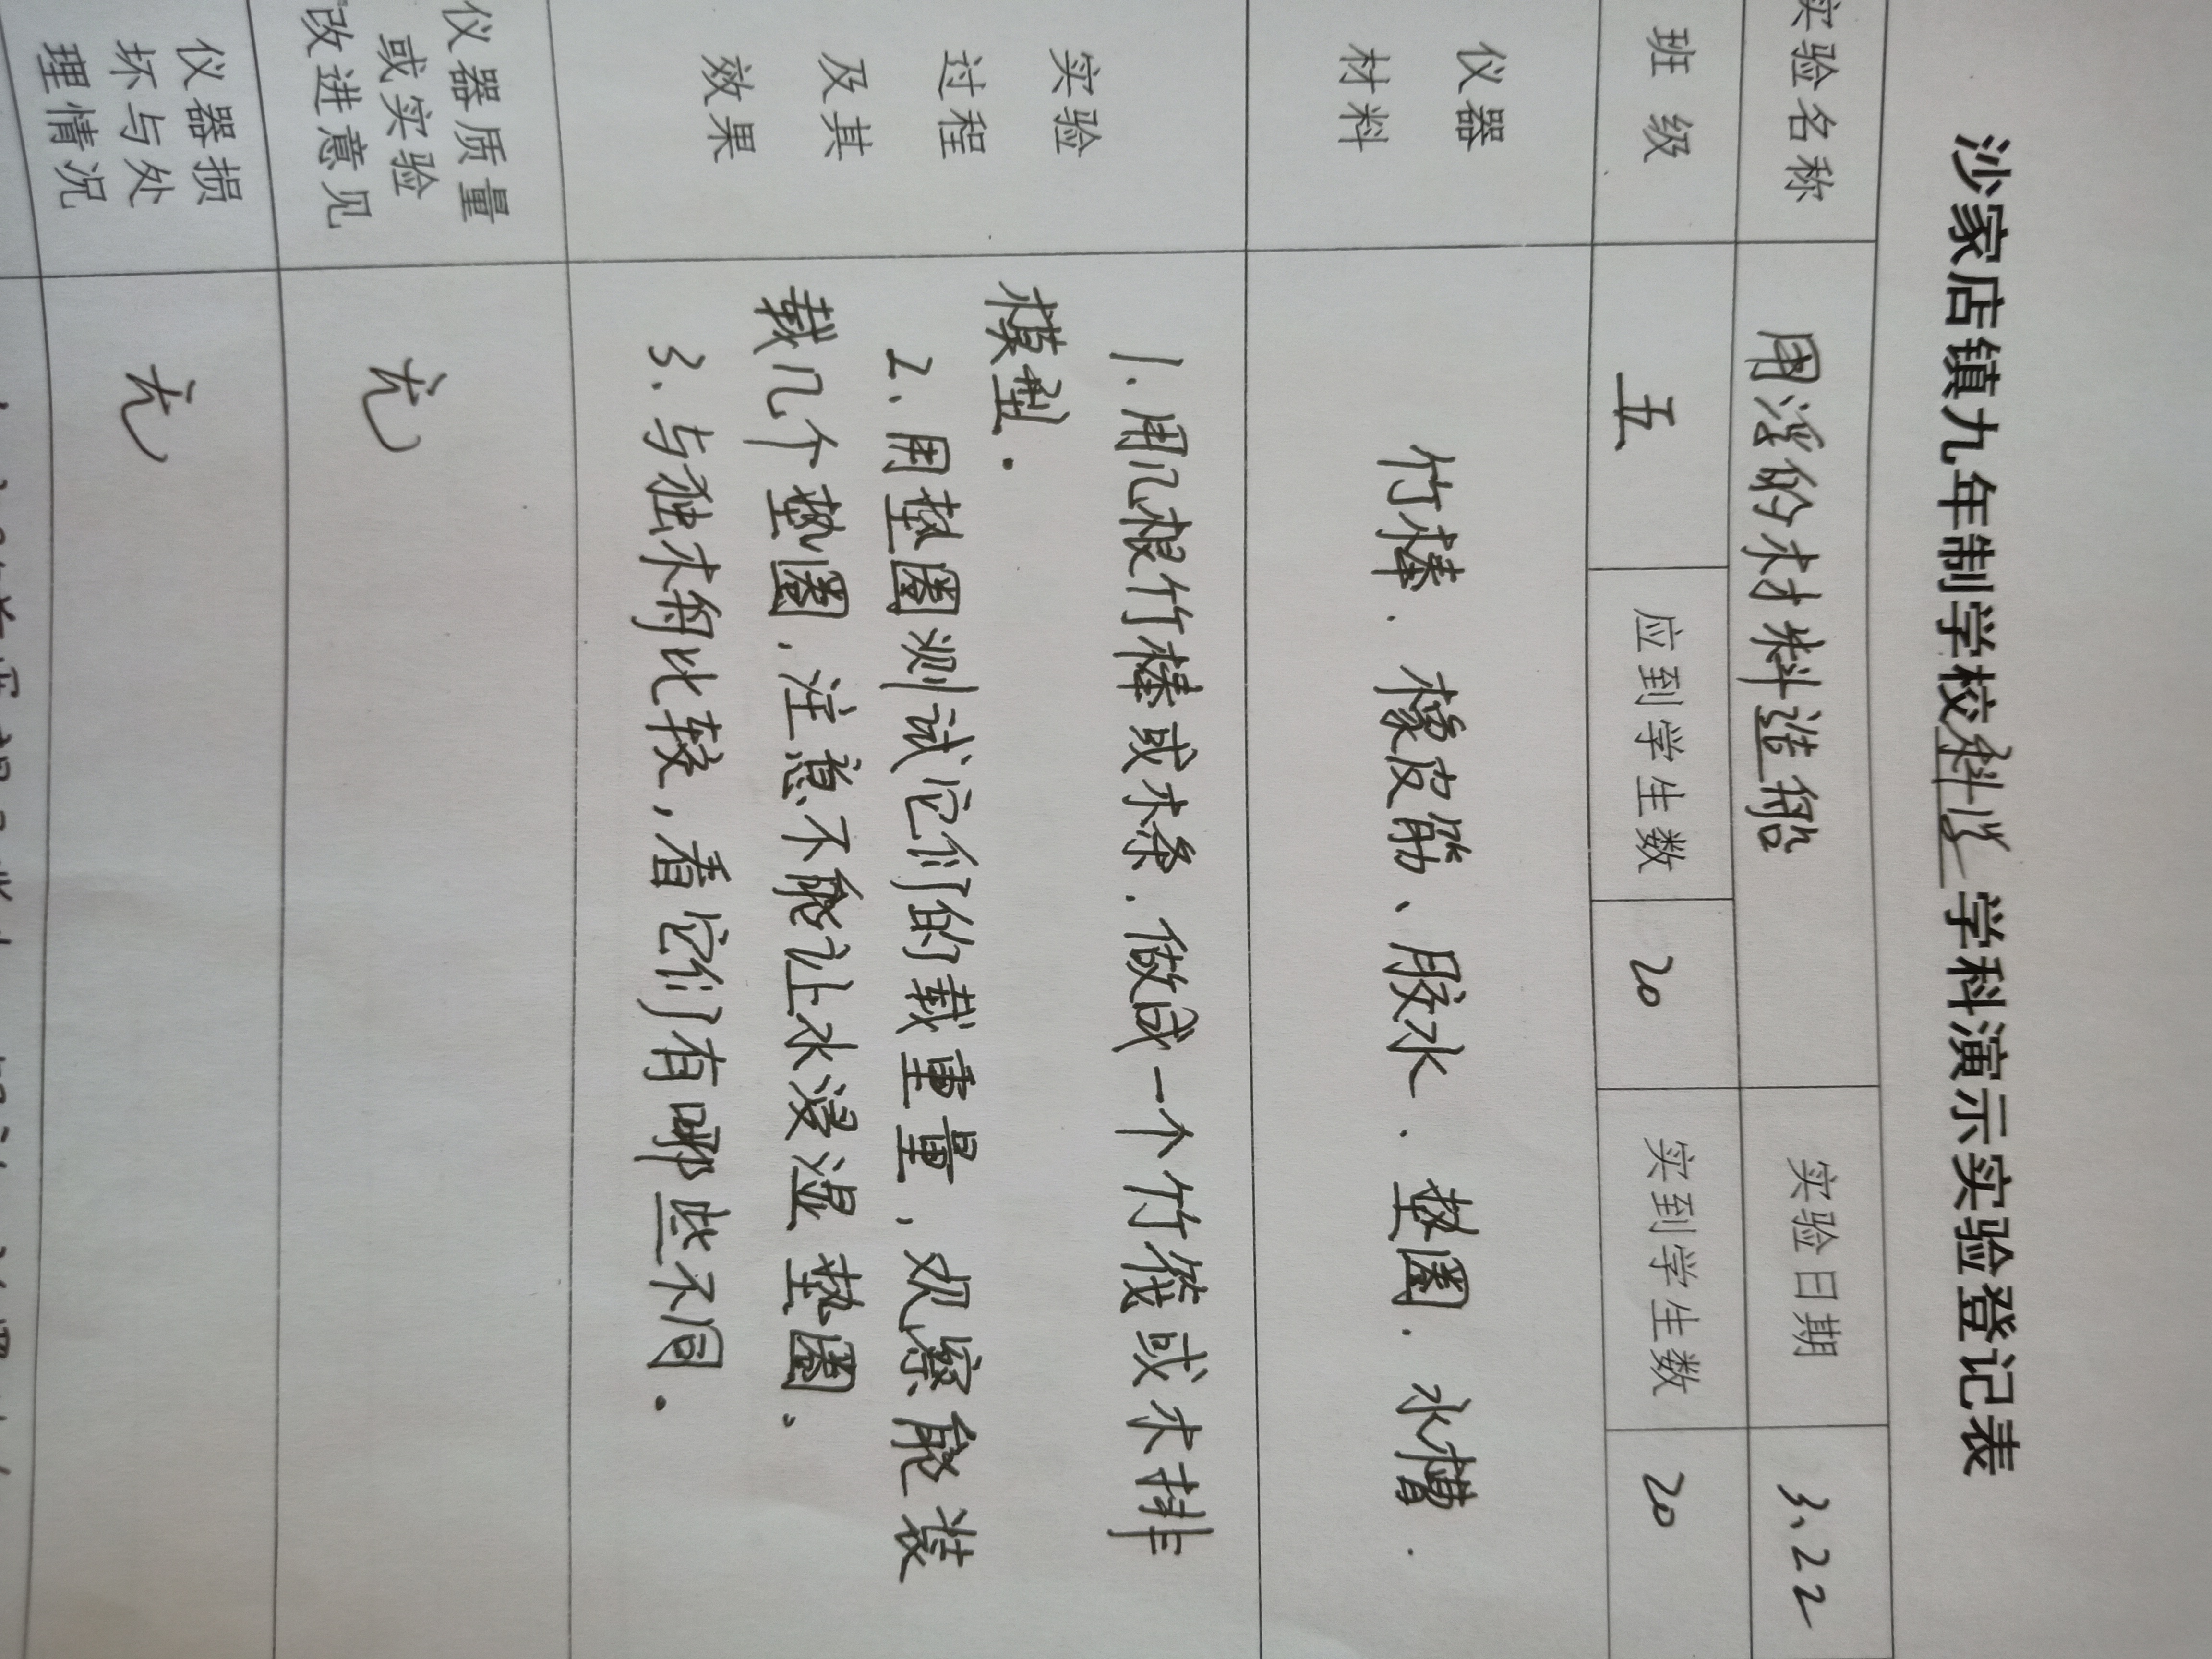 沙家店镇九年制学校科学学科演示实验登记表
实验名称 用浮的材料造船 实验日期 3.22
班级 五 应到学生数 20 实到学生数 20
仪器
材料
竹棒、橡皮筋、胶水、垫圈、水槽.
实验
过程
及其
效果
1.用几根竹棒或木条.做成一个竹筏或木排
模型.
2.用垫圈测试它们的载重量,观察能装
载几个垫圈,注意不能让水浸湿垫圈.
3.与独木舟比较,看它们有哪些不同.
仪器质量
或实验
改进意见
无
仪器损
坏与处
理情况
无